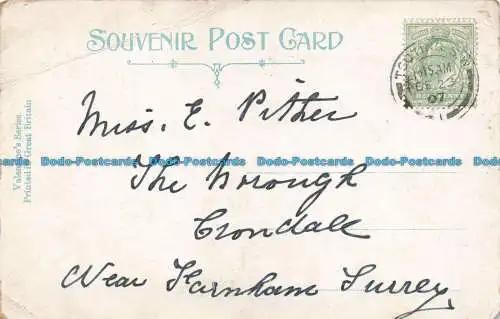 SOUVENIR POST CARD
Valentine's Series.
Printed in Great Britain
Miss. E. Pither
The Borough
Crondall
Near Farnham Surrey.
Dodo-Postcards Dodo-Postcards Dodo-Postcards Dodo-Postcards Dodo-Postcards
07